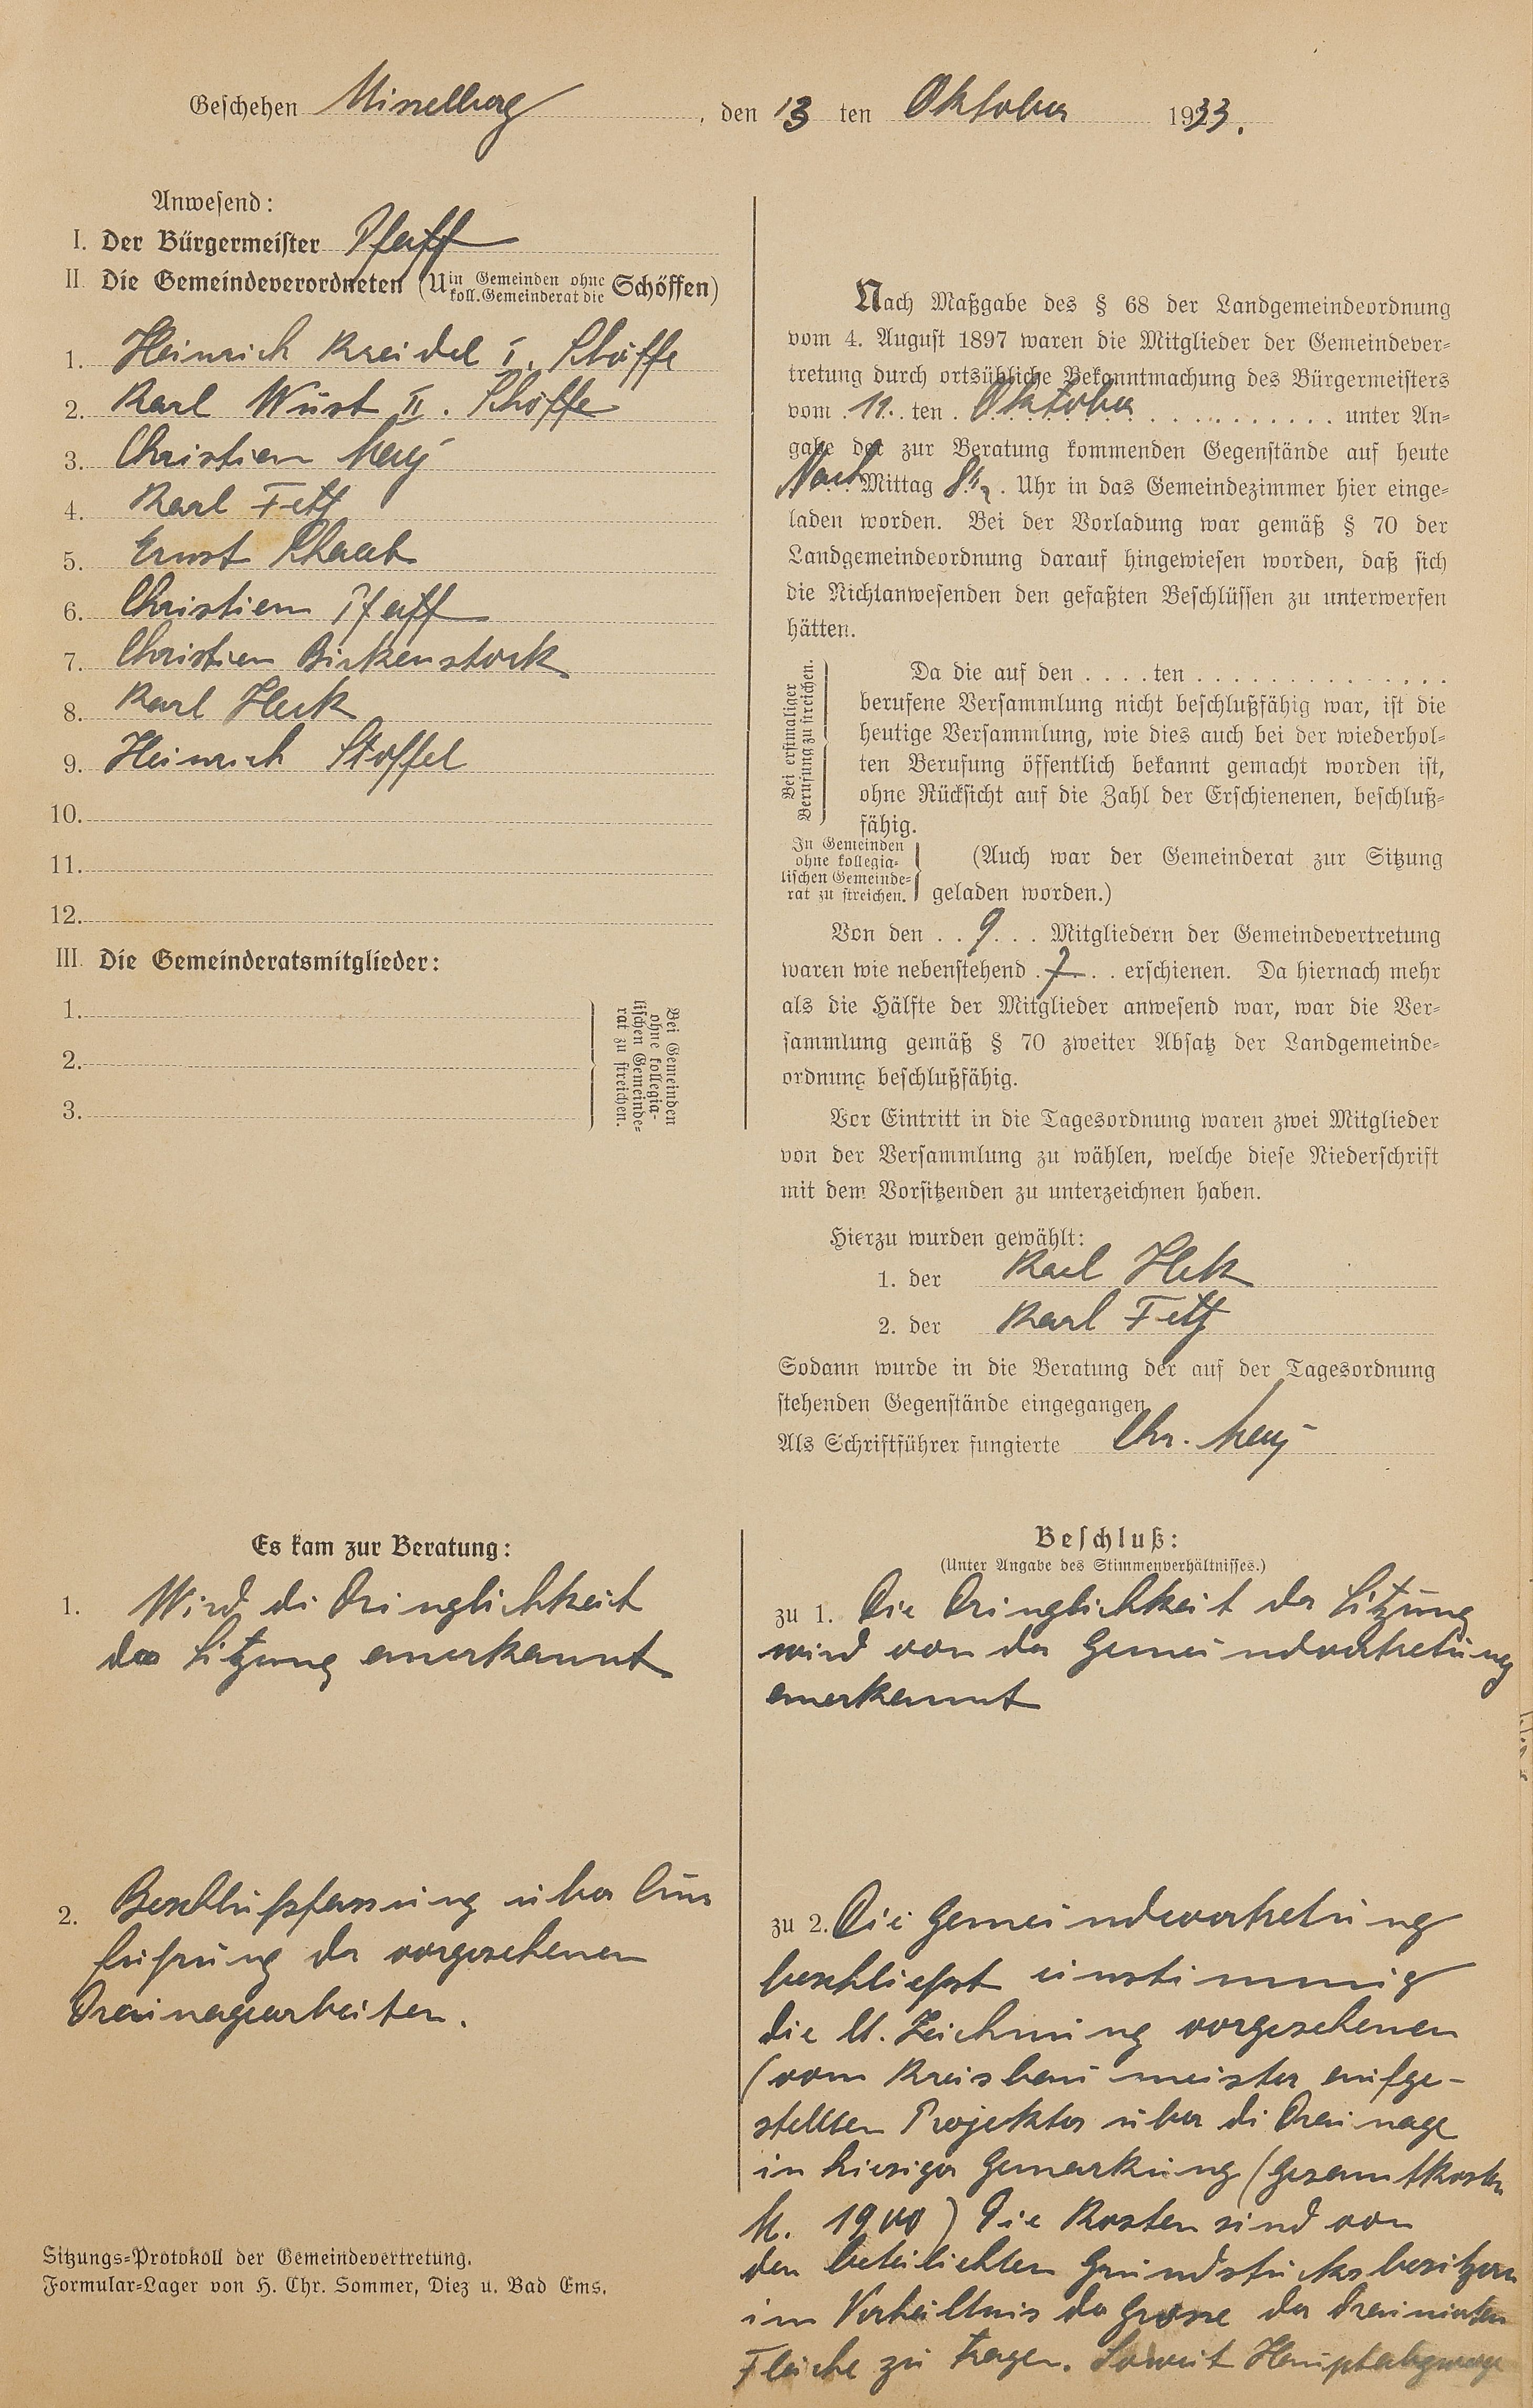 Geschehen Misselberg, den 13 ten Oktober 1933.
Anwesend:
I. Der Bürgermeister Pfaff
II. Die Gemeindeverordneten (U in Gemeinden ohne koll. Gemeinderat die Schöffen)
1. Heinrich Kreidel I. Schöffe
2. Karl Wüst II. Schöffe
3. Christian May
4. Karl Fetz
5. Ernst Schaab
6. Christian Pfaff
7. Christian Birkenstock
8. Karl Heck
9. Heinrich Stoffel
10.
11.
12.
III. Die Gemeinderatsmitglieder:
1.
2.
3.
Bei Gemeinden
ohne kollegia-
lischen Gemeinde-
rat zu streichen.
Nach Maßgabe des § 68 der Landgemeindeordnung
vom 4. August 1897 waren die Mitglieder der Gemeindever-
tretung durch ortsübliche Bekanntmachung des Bürgermeisters
vom 11. ten Oktober unter An-
gabe der zur Beratung kommenden Gegenstände auf heute
Nach Mittag 8½ Uhr in das Gemeindezimmer hier einge-
laden worden. Bei der Vorladung war gemäß § 70 der
Landgemeindeordnung darauf hingewiesen worden, daß sich
die Nichtanwesenden den gefaßten Beschlüssen zu unterwerfen
hätten.
Bei erstmaliger
Berufung zu streichen.
Da die auf den . . . . ten . . . . . . . . . . . . . .
berufene Versammlung nicht beschlußfähig war, ist die
heutige Versammlung, wie dies auch bei der wiederhol-
ten Berufung öffentlich bekannt gemacht worden ist,
ohne Rücksicht auf die Zahl der Erschienenen, beschluß-
fähig.
In Gemeinden
ohne kollegia-
lischen Gemeinde-
rat zu streichen.
(Auch war der Gemeinderat zur Sitzung
geladen worden.)
Von den . . 9. . . Mitgliedern der Gemeindevertretung
waren wie nebenstehend . 7 . . erschienen. Da hiernach mehr
als die Hälfte der Mitglieder anwesend war, war die Ver-
sammlung gemäß § 70 zweiter Absatz der Landgemeinde-
ordnung beschlußfähig.
Vor Eintritt in die Tagesordnung waren zwei Mitglieder
von der Versammlung zu wählen, welche diese Niederschrift
mit dem Vorsitzenden zu unterzeichnen haben.
Hierzu wurden gewählt:
1. der Karl Heck
2. der Karl Fetz
Sodann wurde in die Beratung der auf der Tagesordnung
stehenden Gegenstände eingegangen
Als Schriftführer fungierte Chr. May
Es kam zur Beratung:
1. Wird di Dringlichkeit
der Sitzung anerkannt
2. Beschlußfassung über Aus
führung der vorgesehenen
Drainagearbeiten.
Beschluß:
(Unter Angabe des Stimmenverhältnisses.)
zu 1. Die Dringlichkeit der Sitzung
wird von der Gemeindvertretung
anerkannt
zu 2. Die Gemeindevertretung
beschliesst einstimmig
die lt. Zeichnung vorgesehenen
(vom Kreisbaumeister aufge-
stellten Projektes über di Drainage
in hiesiger Gemarkung (Gesamtkosten
M. 1900) Die Kosten sind von
den beteilichten Grundstücksbesitzern
im Verhältnis der Grösse der drainierten
Fläche zu tragen. Soweit
Sitzungs-Protokoll der Gemeindevertretung.
Formular-Lager von H. Chr. Sommer, Diez u. Bad Ems.